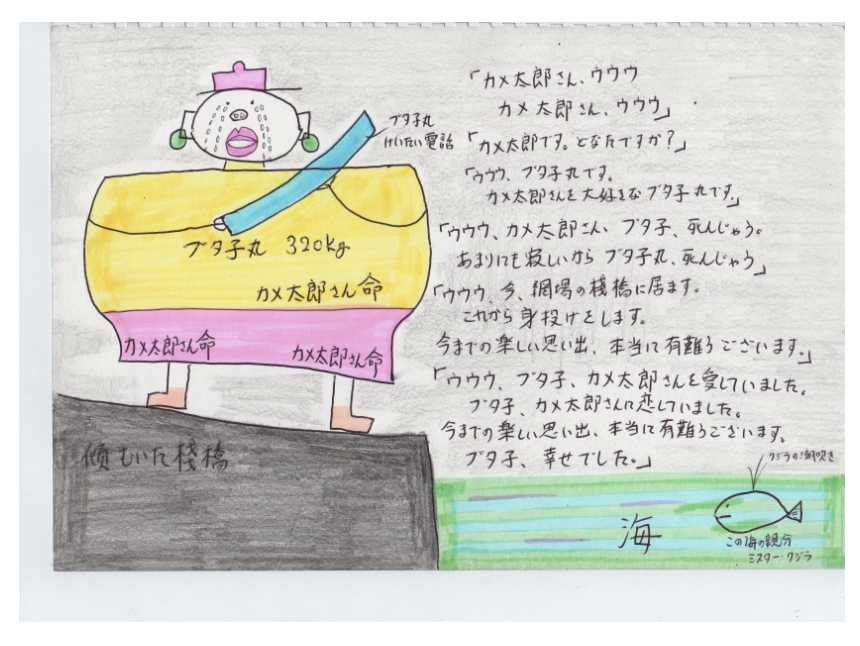 「カメ太郎さん、ウウウ
カメ太郎さん、ウウウ」
ブタ子丸
けいたい電話
「カメ太郎です。どなたですか?」
「ウウウ、ブタ子丸です。
カメ太郎さんを大好きなブタ子丸です。」
「ウウウ、カメ太郎さん、ブタ子、死んじゃう。
あまりにも寂しいからブタ子丸、死んじゃう」
「ウウウ、今、網場の桟橋に居ます。
これから身投げをします。
今までの楽しい思い出、本当に有難うございます。」
「ウウウ、ブタ子、カメ太郎さんを愛していました。
ブタ子、カメ太郎さんに恋していました。
今までの楽しい思い出、本当に有難うございます。
ブタ子、幸せでした。」
ブタ子丸 320kg
カメ太郎さん命
カメ太郎さん命
カメ太郎さん命
傾むいた桟橋
クジラの潮吹き
海
この海の親分
ミスター・クジラ